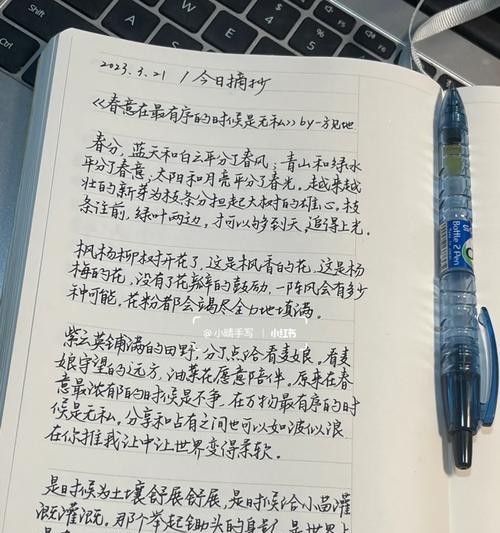 2023.3.21 / 今日摘抄
《春意在最有序的时候是无私》by-方见地
春分，蓝天和白云平分了春风；青山和绿水
平分了春意；太阳和月亮平分了春光。越来越
壮的新芽为枝条分担起大树的雄心。枝
条往前，绿叶两边，才可以够到天，追得上光。
枫杨柳树开花了，这是枫香的花，这是杨
梅的花，没有了花瓣的鼓励，一阵风会有多少
种可能。花粉都会竭尽全力地填满。
@小晴手写 小红书
紫云英铺满的田野，分了点给看麦娘。看麦
娘守望的远方，油菜花愿意陪伴。原来在春
意最浓郁的时候是不争，在万物最有序的时
候是无私。分享和占有之间也可以如波似浪
在你推我让中让世界变得柔软。
是时候为土壤舒展舒展，是时候给小苗灌
溉灌溉。那个举起锄头的身影，是世界上
Bottle 2 Pen